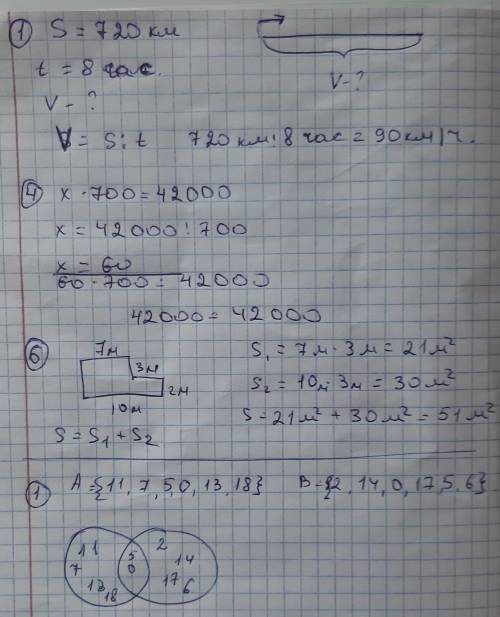 ① S = 720 км
t = 8 час.
V - ?
V - ?
V = S : t 720 км : 8 час = 90 км/ч.
④ x · 700 = 42000
x = 42000 : 700
x = 60
60 · 700 = 42000
42000 = 42000
⑥ 7м
3м
2м
10м
S₁ = 7м · 3м = 21м²
S₂ = 10м · 3м = 30м²
S = 21м² + 30м² = 51м²
S = S₁ + S₂
① A = {11, 7, 5, 0, 13, 18} B = {2, 14, 0, 17, 5, 6}
11 5 2
7 0 14
13 17
18 6